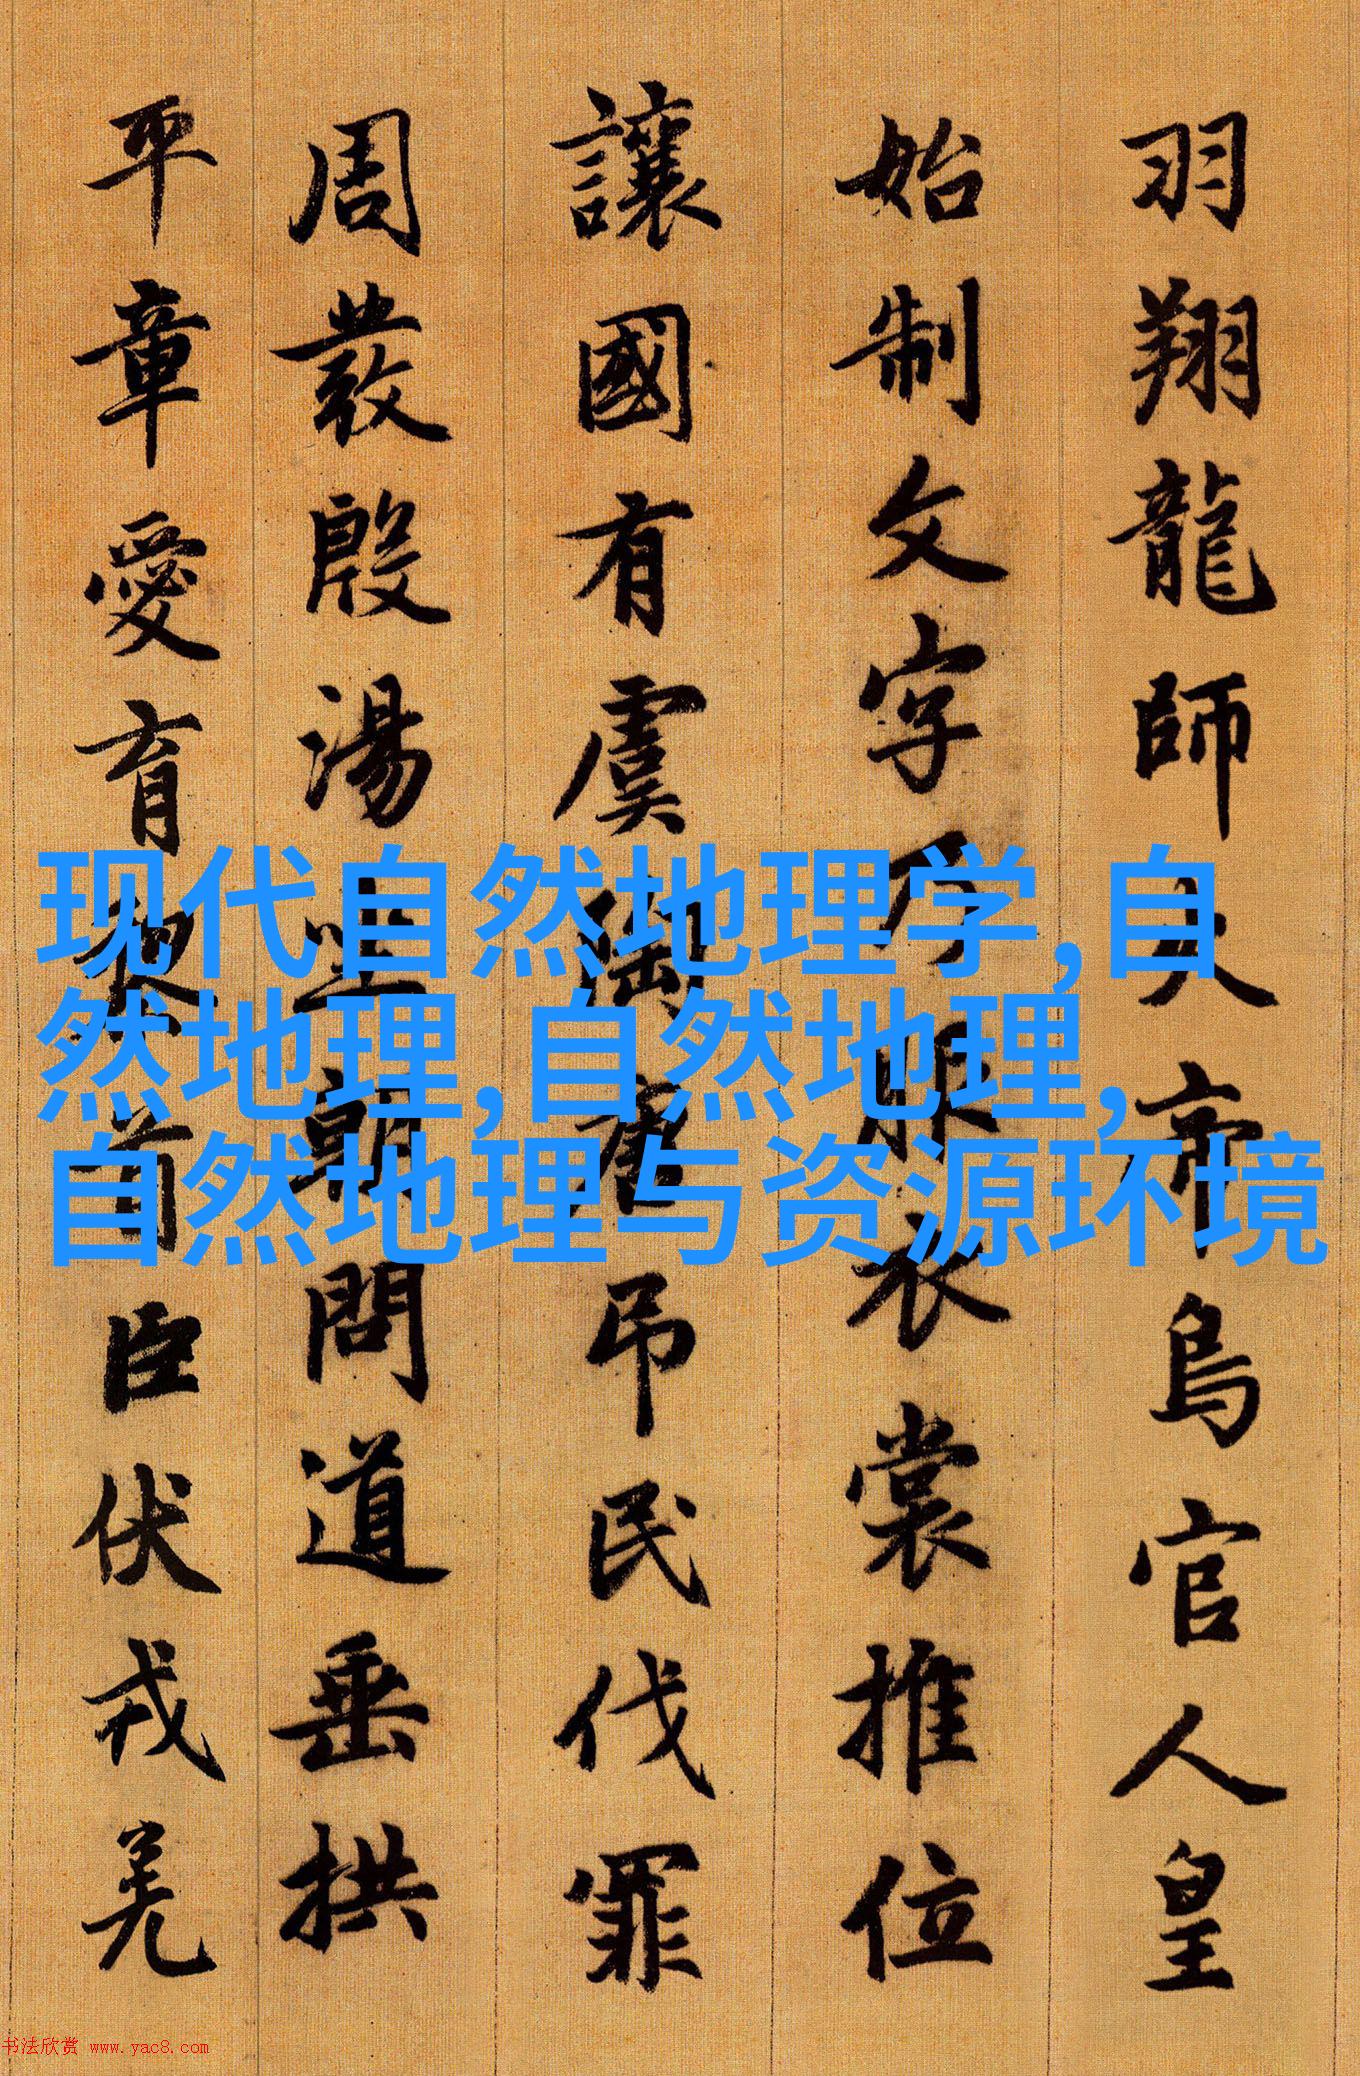 羽翔龍師火帝鳥官人皇
始制文字乃服衣裳推位
讓國有虞陶唐吊民伐罪
周發殷湯坐朝問道垂拱
平章愛育黎首臣伏戎羌
现代自然地理学,自
然地理,自然地理,
自然地理与资源环境
书法欣赏 www.yac8.com